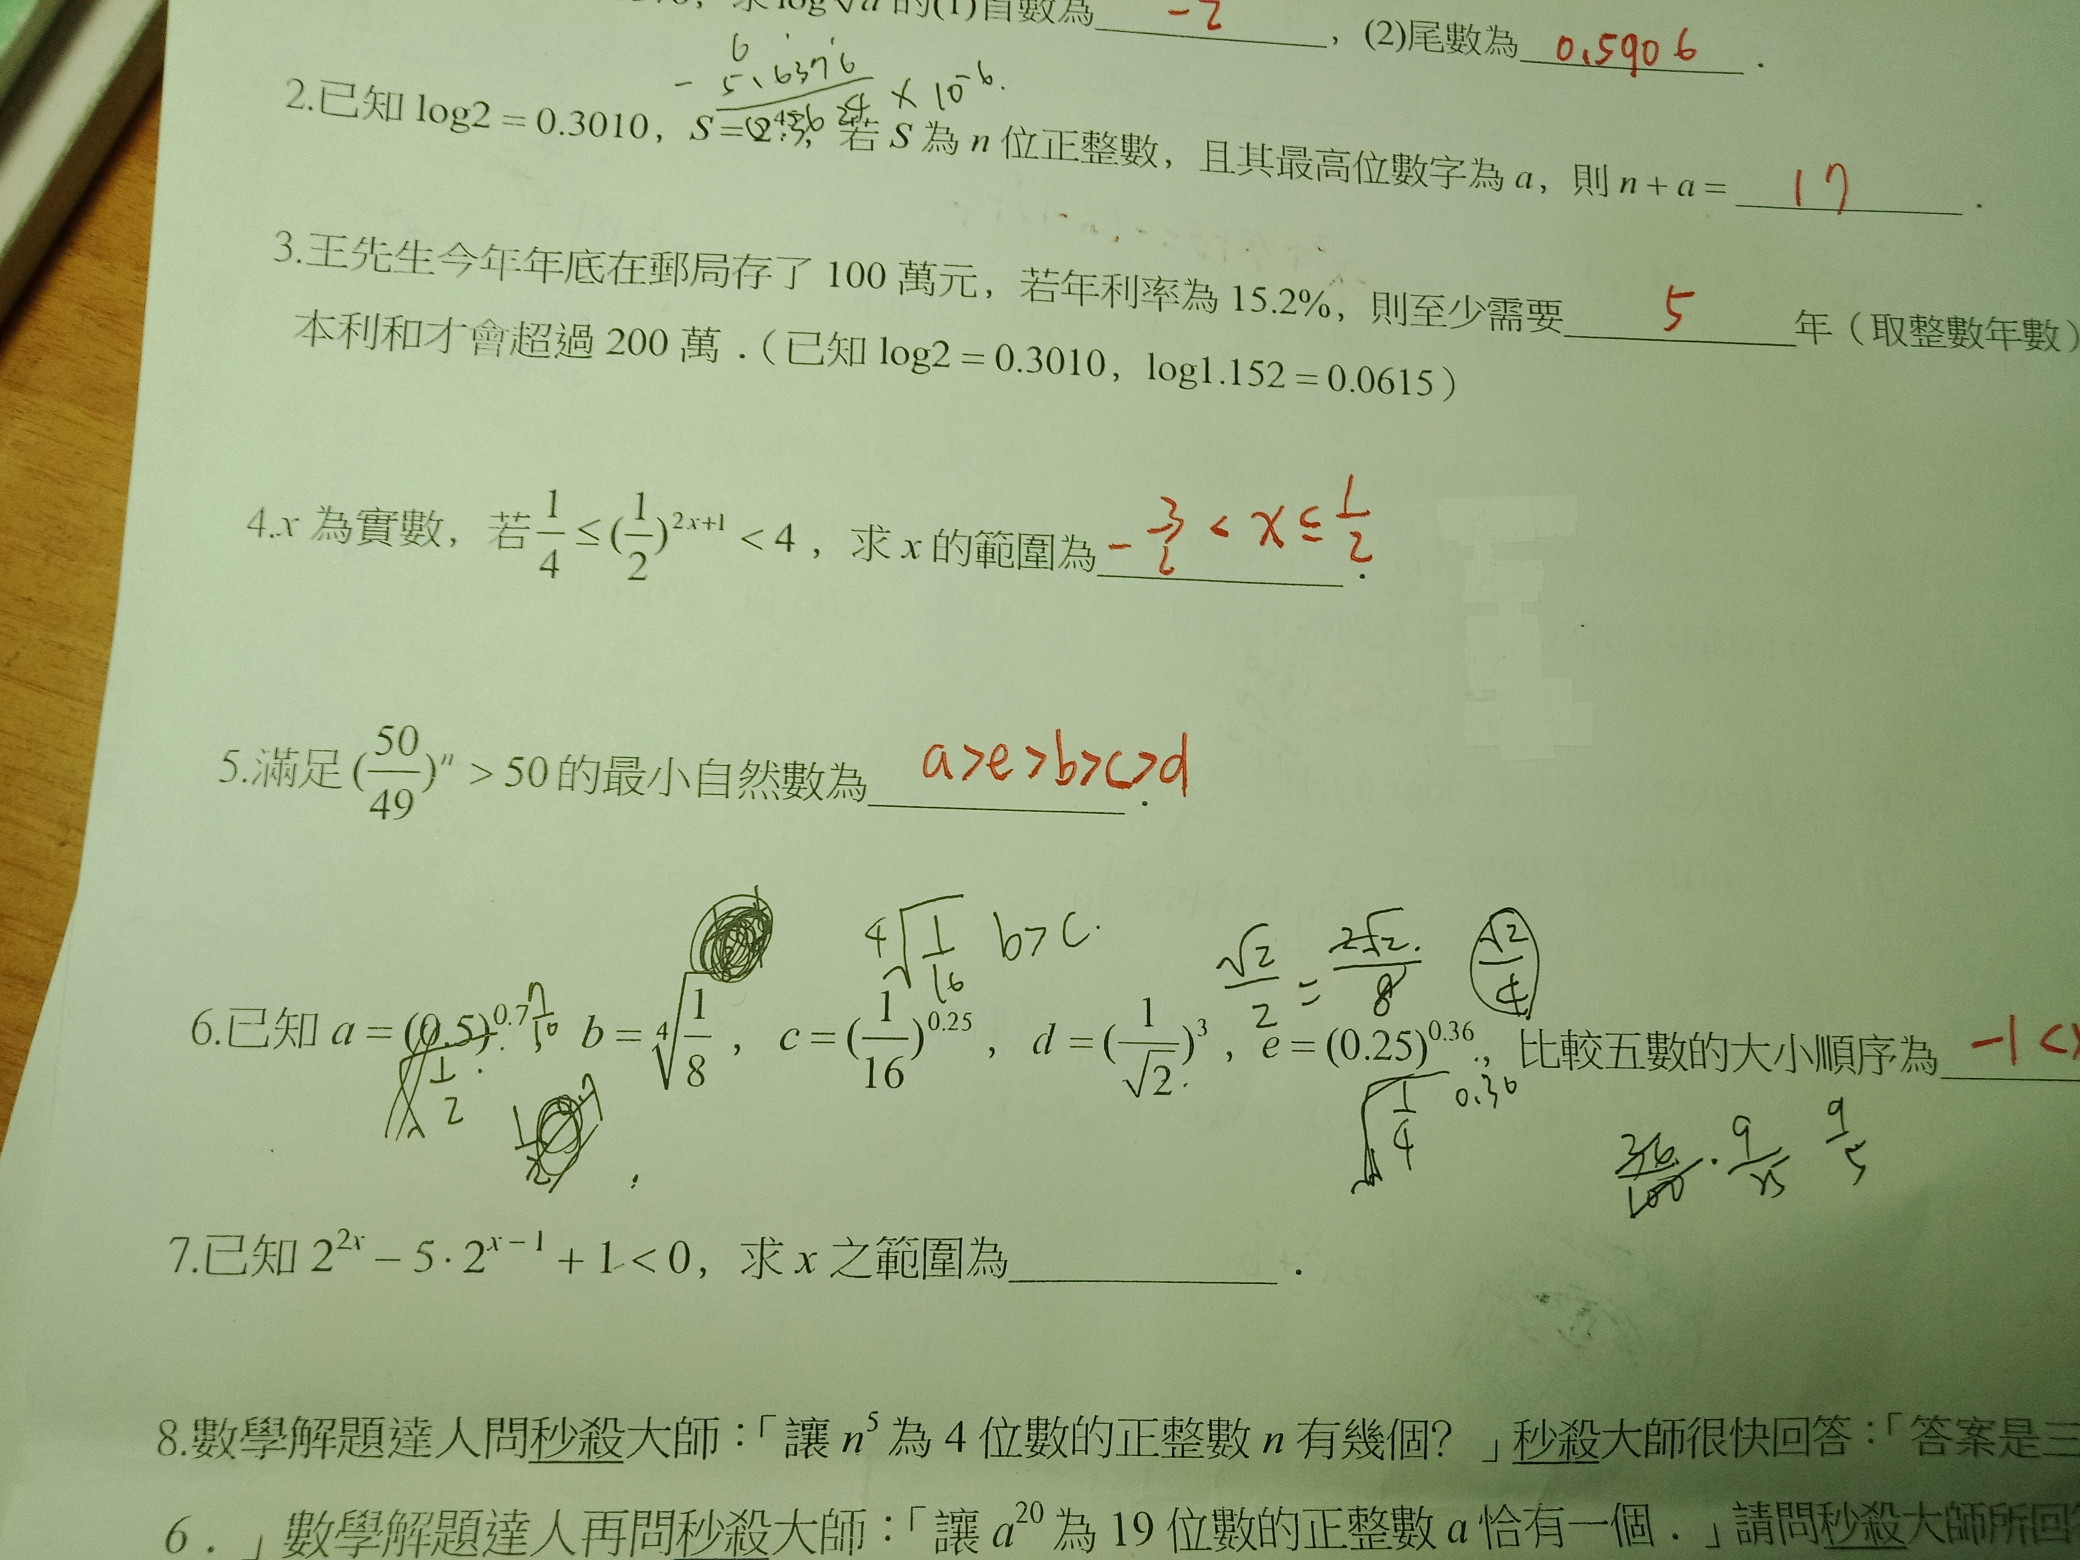 求log√a 的(1)首數為 -2 ，(2)尾數為 0.5906 .
6
- 5.6376 × 10⁻⁶.
2.已知 log2 = 0.3010，S = 若 S 為 n 位正整數，且其最高位數字為 a，則 n + a = 17 .
3.王先生今年年底在郵局存了 100 萬元，若年利率為 15.2%，則至少需要 5 年（取整數年數）
本利和才會超過 200 萬．（已知 log2 = 0.3010，log1.152 = 0.0615）
4.x 為實數，若 1/4 ≤ (1/2)^(2x+1) < 4，求 x 的範圍為 -3/2 < x ≤ 1/2 .
5.滿足 (50/49)ⁿ > 50 的最小自然數為 a>e>b>c>d .
⁴√(1/16) b>c. √2/2 = 2√2/8 √2/4
6.已知 a = (0.5)^0.7 7/10，b = ⁴√(1/8)，c = (1/16)^0.25，d = (1/√2)³，e = (0.25)^0.36，比較五數的大小順序為 -1<
1/2 √(1/4) 0.36 36/100 . 9/25 9/5
7.已知 2^(2x) − 5·2^(x−1) + 1 < 0，求 x 之範圍為 .
8.數學解題達人問秒殺大師：「讓 n⁵ 為 4 位數的正整數 n 有幾個？」秒殺大師很快回答：「答案是三
6．」數學解題達人再問秒殺大師：「讓 a²⁰ 為 19 位數的正整數 a 恰有一個．」請問秒殺大師所回